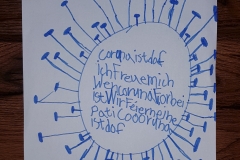 corona ist dof
Ich Freue mich
Wen carona Forbei
ist Wir Feiern eine
Pati Cooorona
ist dof